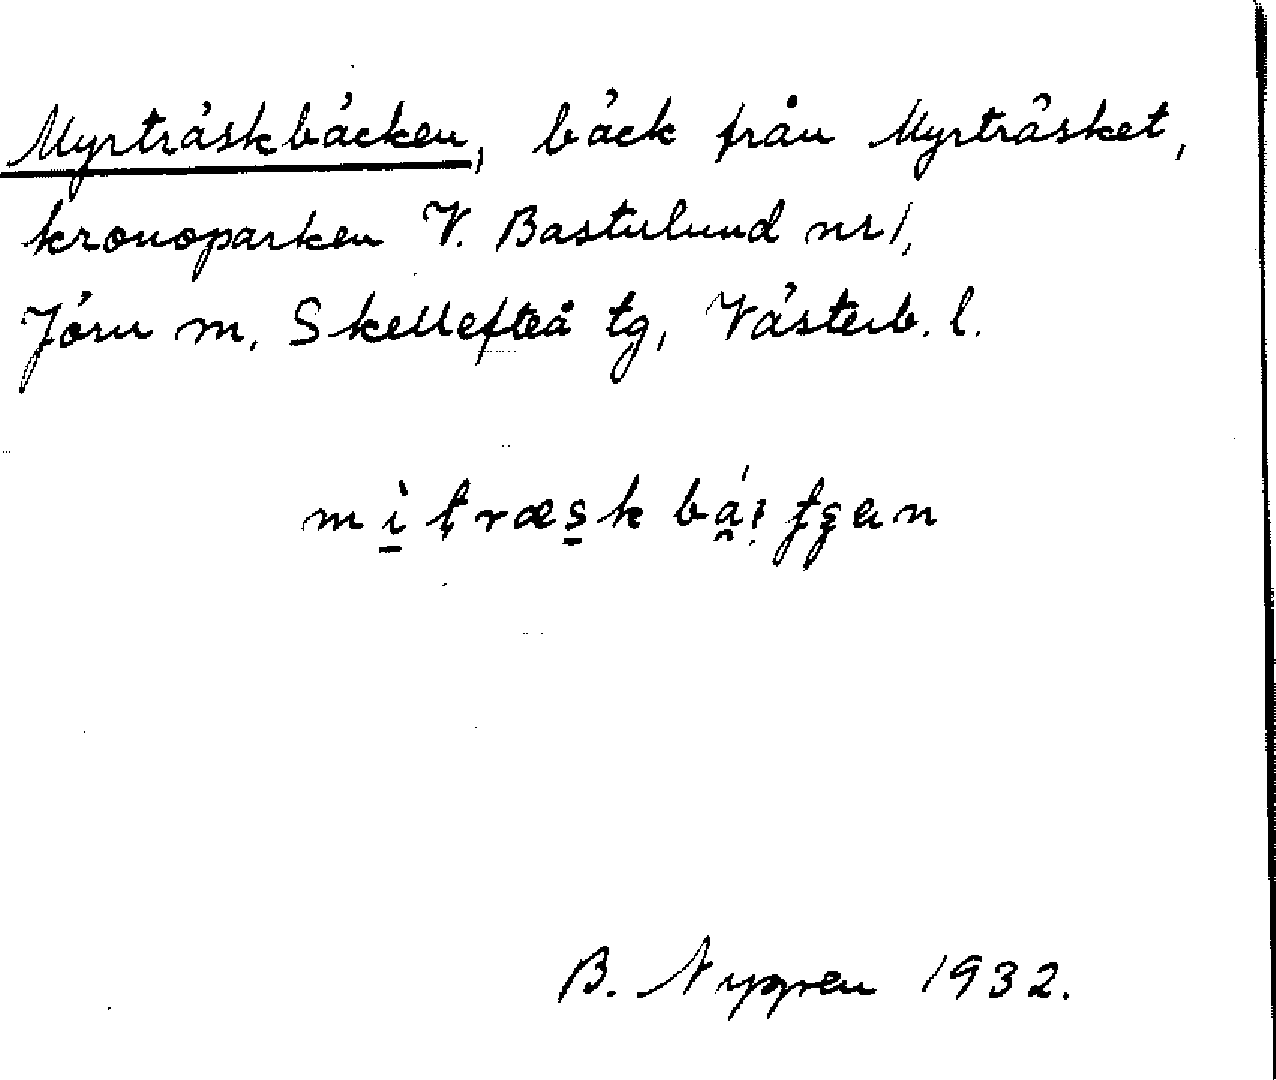 Myrträskbäcken, bäck från Myrträsket,
kronoparken V. Bastulund nr 1,
Jörn sn, Skellefteå tg, Västerb. l.
B. Nygren 1932.